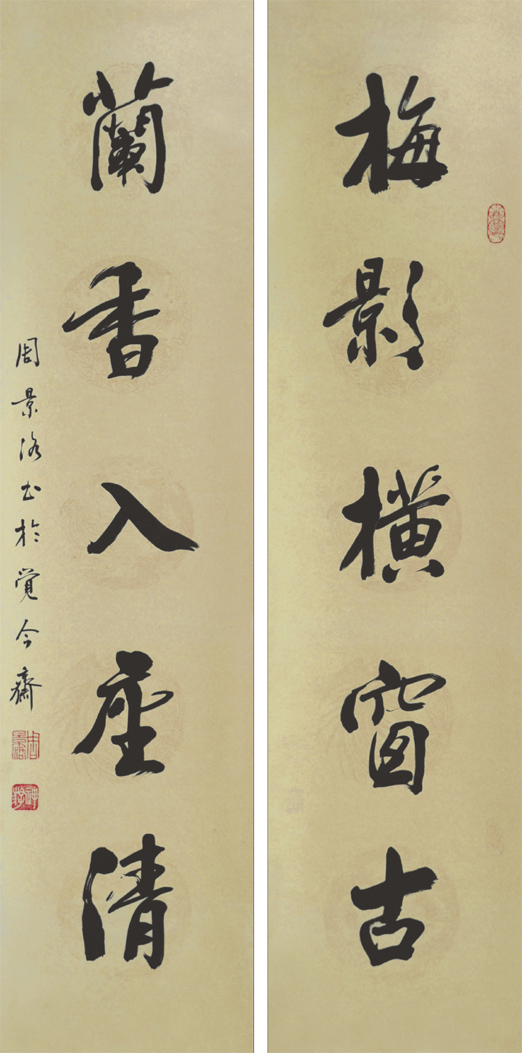 梅影橫窗古
蘭香入座清
周景洛书於覺今齋